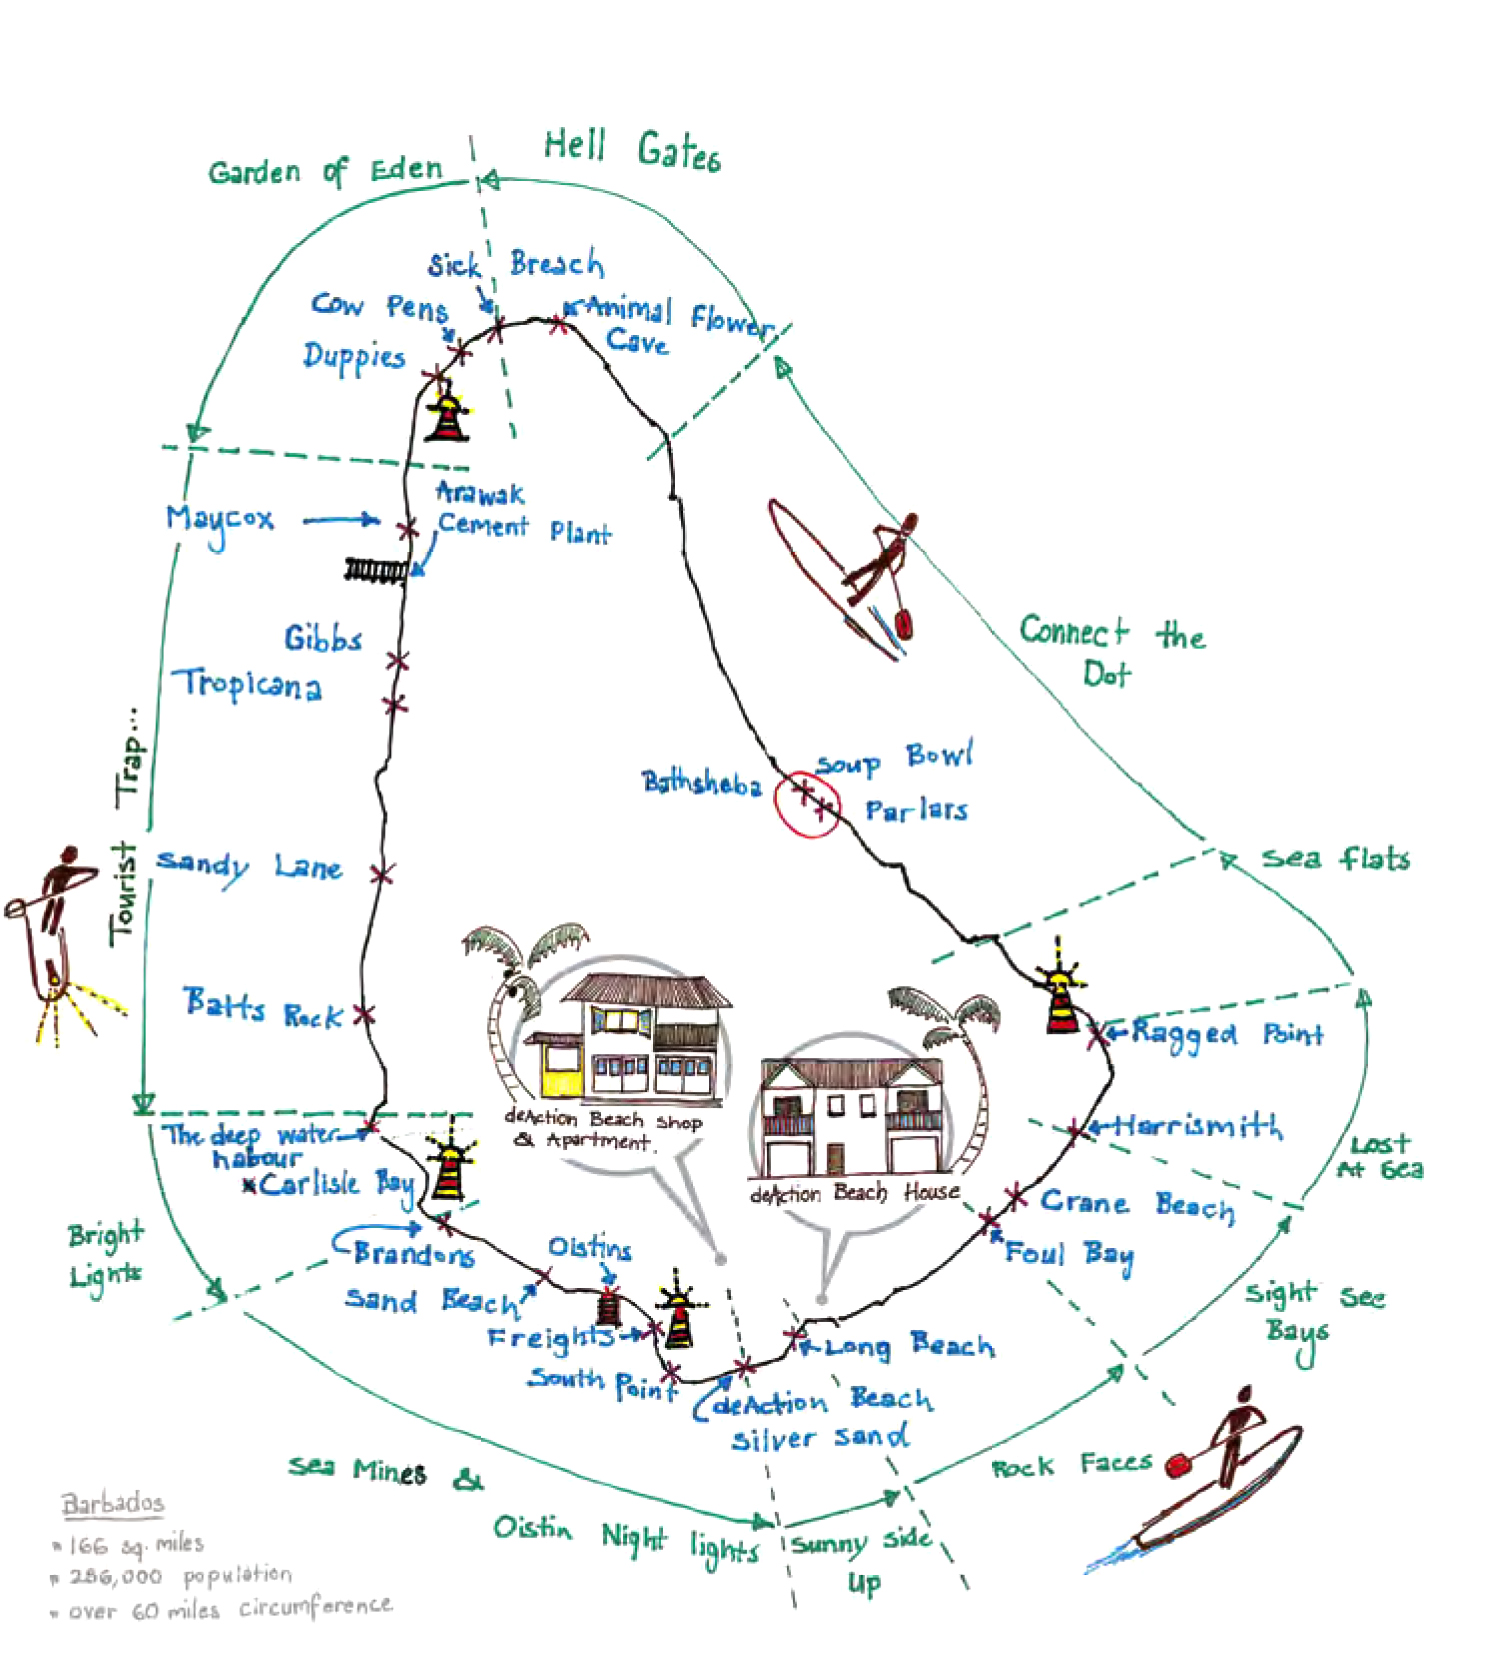 Hell Gates
Garden of Eden
Sick Breach
Cow Pens
Animal Flower
Cave
Duppies
Arawak
Cement Plant
Maycox
Gibbs
Tropicana
Connect the
Dot
Tourist Trap...
Bathsheba
Soup Bowl
Parlars
Sandy Lane
Sea flats
Batts Rock
Ragged Point
deAction Beach Shop
& Apartment.
deAction Beach House
The deep water
habour
Carlisle Bay
Harrismith
Lost
At Sea
Crane Beach
Foul Bay
Bright
Lights
Brandons
Oistins
Sand Beach
Freights
South Point
Long Beach
Sight See
Bays
deAction Beach
Silver Sand
Rock Faces
Sea Mines &
Oistin Night lights
Sunny Side
Up
Barbados
166 sq. miles
286,000 population
over 60 miles circumference